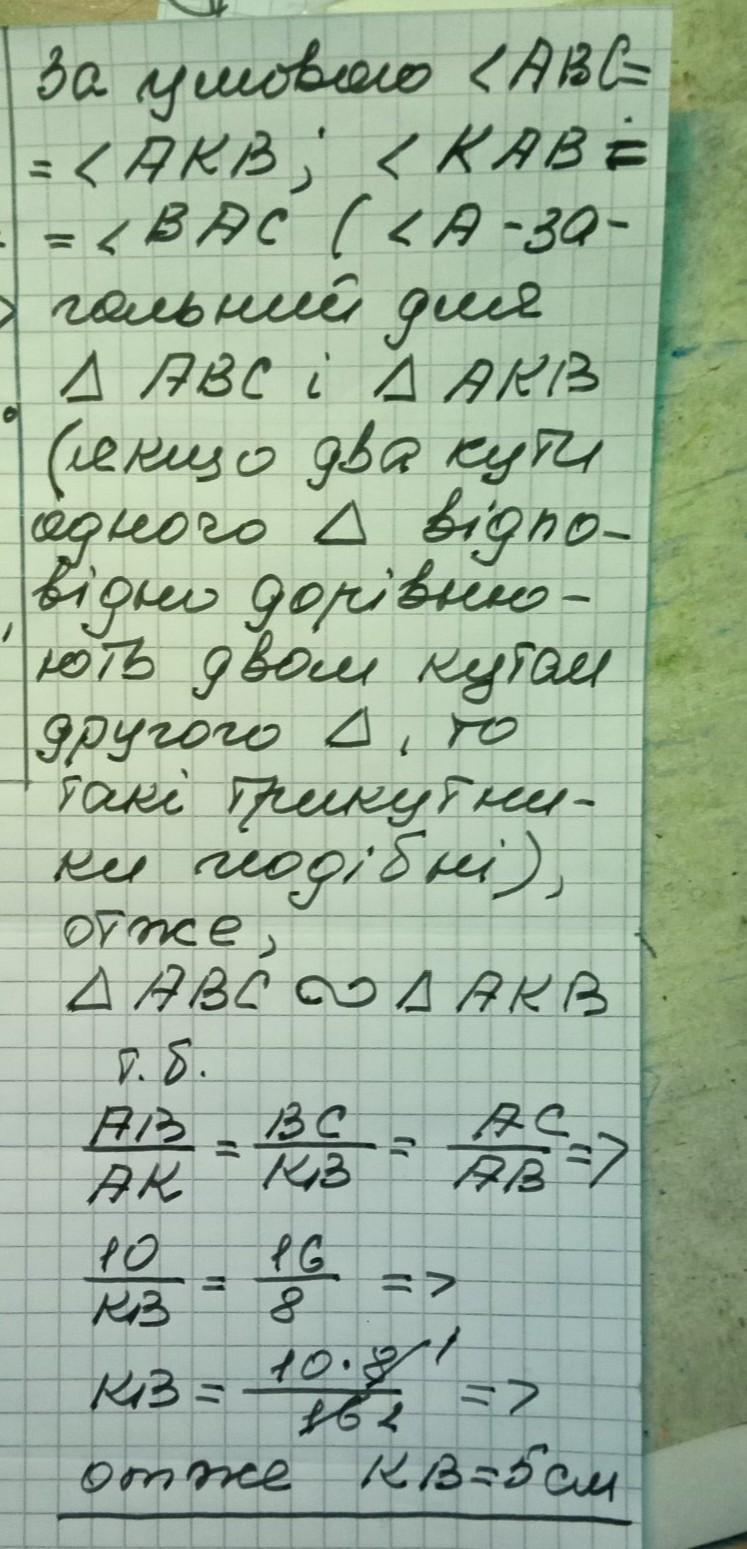 За умовою <ABC=
= <AKB; <KAB =
= <BAC (<A - за-
гальний для
Δ ABC і Δ AKB
(якщо два кути
одного Δ відпо-
відно дорівню-
ють двом кутам
другого Δ, то
такі трикутни-
ки подібні),
отже,
Δ ABC ∞ Δ AKB
т.б.
AB/AK = BC/KB = AC/AB =>
10/KB = 16/8 =>
KB = 10·8 1/16 2 =>
отже KB=5см